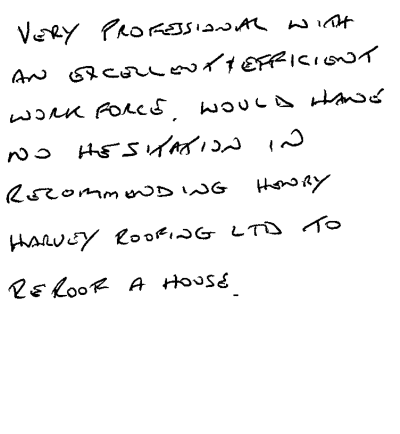 VERY PROFESSIONAL WITH
AN EXCELLENT & EFFICIENT
WORK FORCE. WOULD HAVE
NO HESITATION IN
RECOMMENDING HENRY
HARVEY ROOFING LTD TO
REROOF A HOUSE.